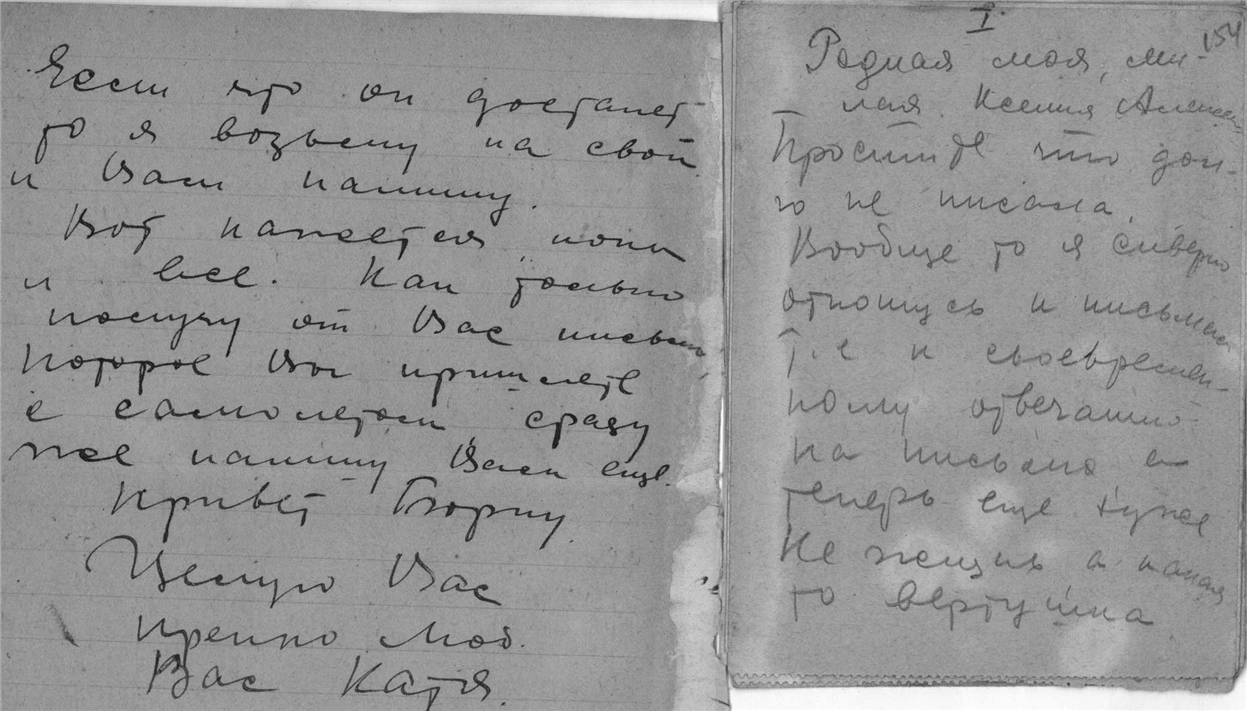 Если что он достанет
то я возьму на свой
и Вам напишу.
Вот кажется пока
и все. Как только
получу от Вас письмо,
которое Вы пришлете
с самолетом, сразу
же напишу Вам еще.
Привет Борису.
Целую Вас
крепко люб.
Вас Катя.
I.
154
Родная моя, ми-
лая Ксения
Простите что дол-
го не писала.
Вообще то я скверно
отношусь к письмам
т.е к своевремен-
ному отвечанию
на письма а
теперь еще хуже
Не женщина а какая
то вертушка